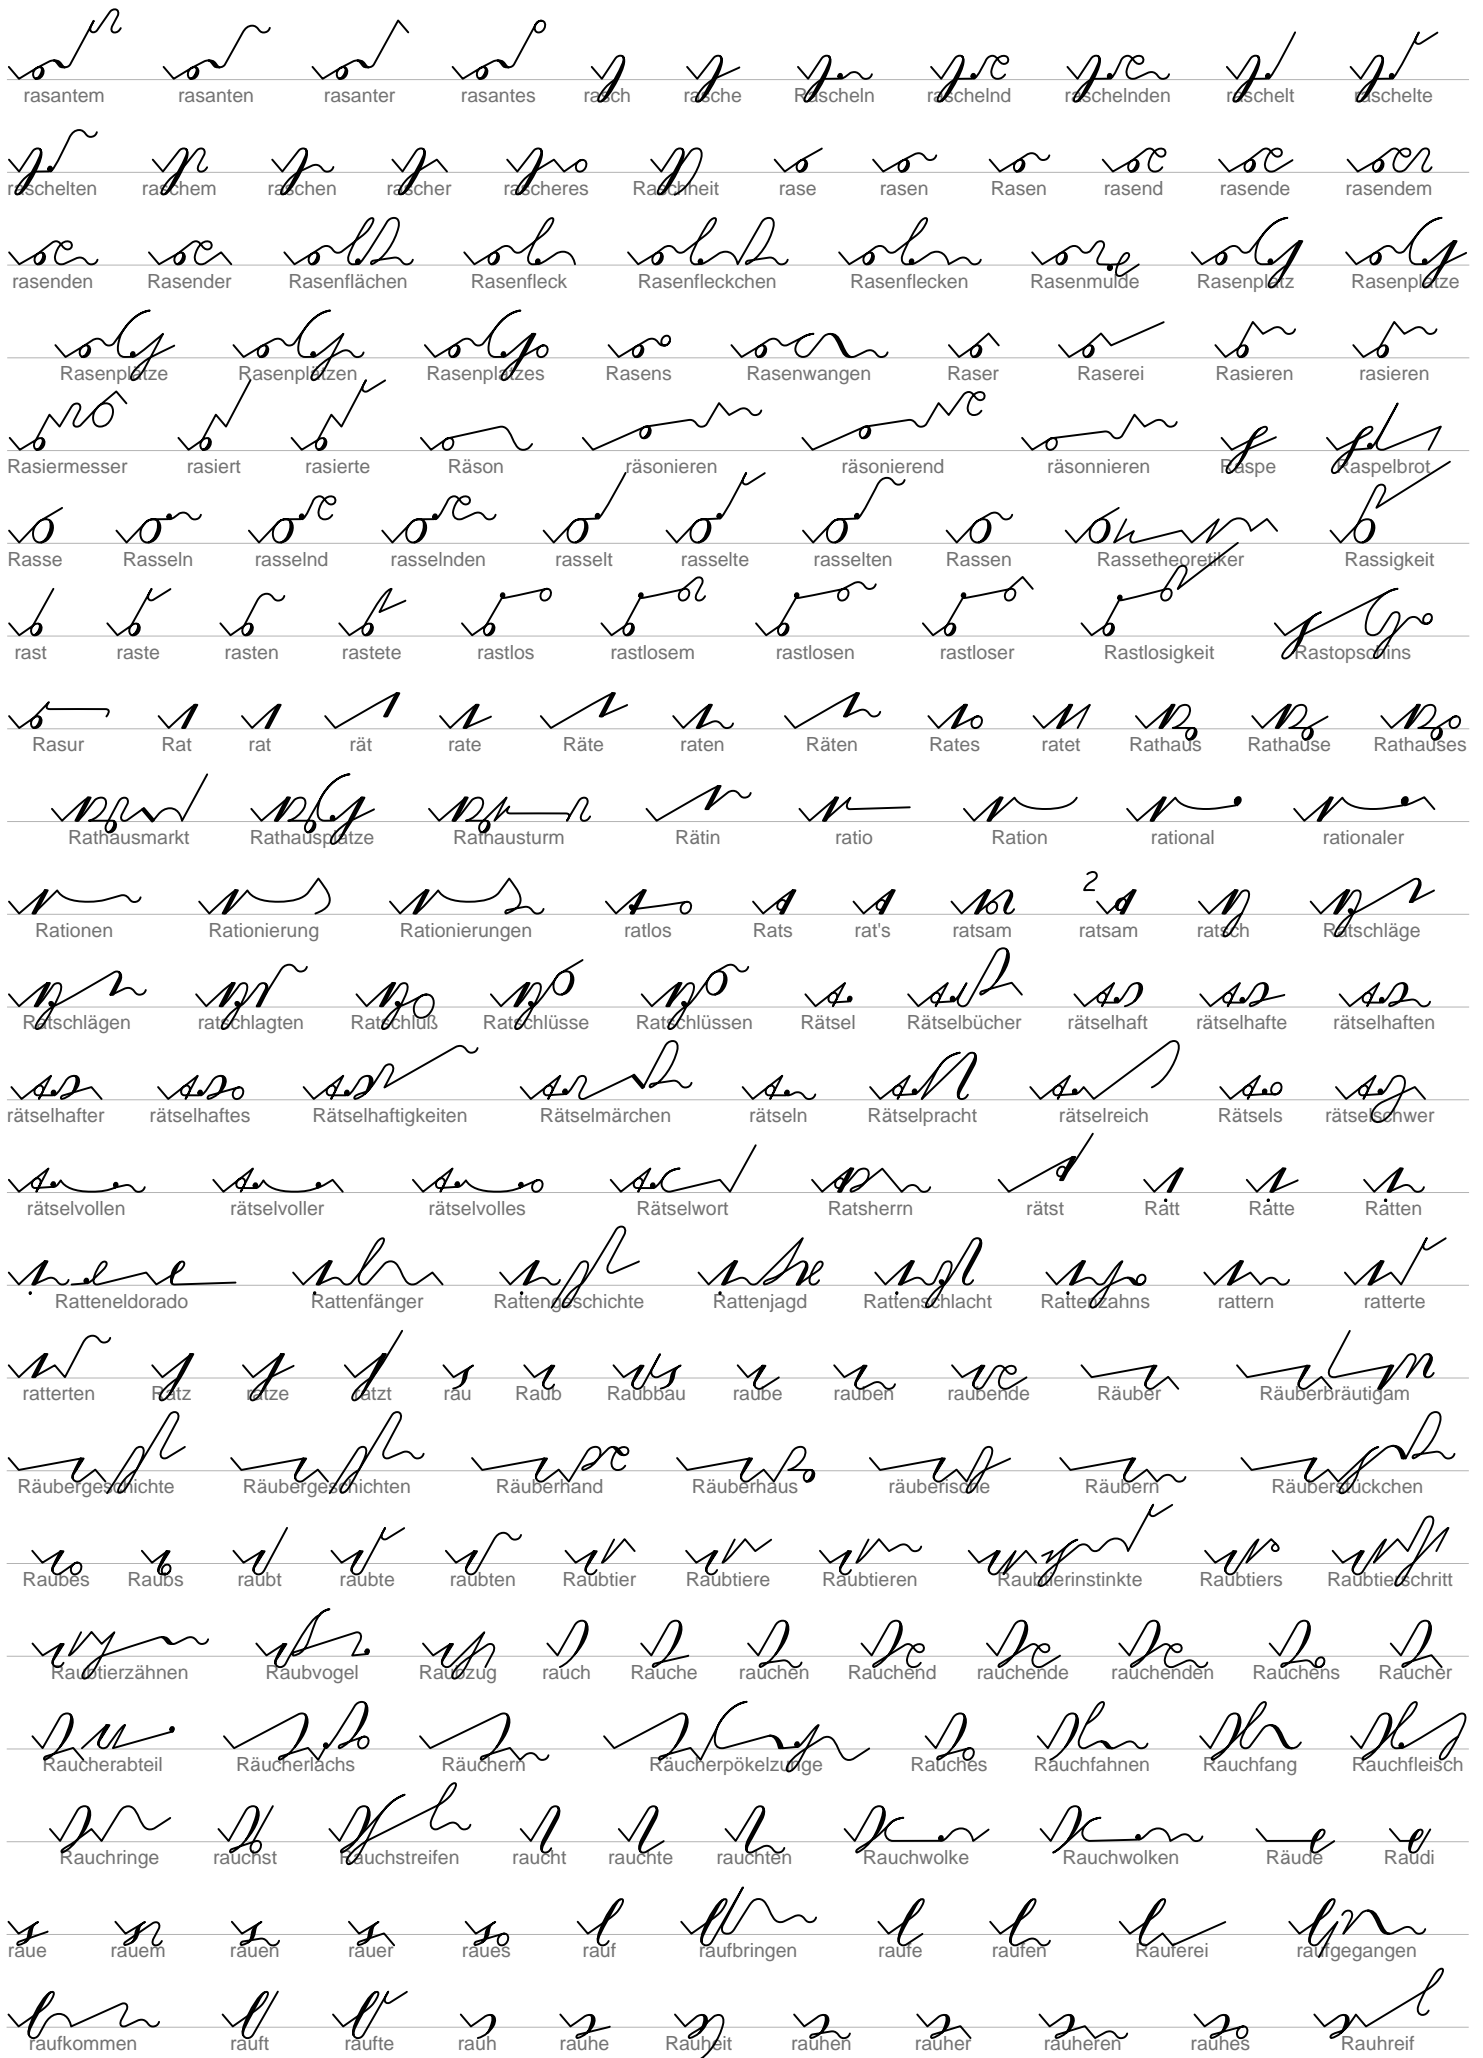 rasantem rasanten rasanter rasantes rasch rasche Rascheln raschelnd raschelnden raschelt raschelte
raschelten raschem raschen rascher rascheres Raschheit rase rasen Rasen rasend rasende rasendem
rasenden Rasender Rasenflächen Rasenfleck Rasenfleckchen Rasenflecken Rasenmulde Rasenplatz Rasenplatze
Rasenplätze Rasenplätzen Rasenplatzes Rasens Rasenwangen Raser Raserei Rasieren rasieren
Rasiermesser rasiert rasierte Räson räsonieren räsonierend räsonnieren Raspe Raspelbrot
Rasse Rasseln rasselnd rasselnden rasselt rasselte rasselten Rassen Rassetheoretiker Rassigkeit
rast raste rasten rastete rastlos rastlosem rastlosen rastloser Rastlosigkeit Rastopschins
Rasur Rat rat rät rate Räte raten Räten Rates ratet Rathaus Rathause Rathauses
Rathausmarkt Rathausplatze Rathausturm Rätin ratio Ration rational rationaler
Rationen Rationierung Rationierungen ratlos Rats rat's ratsam 2 ratsam ratsch Ratschläge
Ratschlägen ratschlagten Ratschluß Ratschlüsse Ratschlüssen Rätsel Rätselbücher rätselhaft rätselhafte rätselhaften
rätselhafter rätselhaftes Rätselhaftigkeiten Rätselmärchen rätseln Rätselpracht rätselreich Rätsels rätselschwer
rätselvollen rätselvoller rätselvolles Rätselwort Ratsherrn rätst Rátt Rátte Rátten
Ratteneldorado Rattenfänger Rattengeschichte Rattenjagd Rattenschlacht Rattenzahns rattern ratterte
ratterten Ratz ratze ratzt rau Raub Raubbau raube rauben raubende Räuber Räuberbräutigam
Räubergeschichte Räubergeschichten Räuberhand Räuberhaus räuberische Räubern Räuberstückchen
Raubes Raubs raubt raubte raubten Raubtier Raubtiere Raubtieren Raubtierinstinkte Raubtiers Raubtierschritt
Raubtierzähnen Raubvogel Raubzug rauch Rauche rauchen Rauchend rauchende rauchenden Rauchens Raucher
Raucherabteil Räucherlachs Räuchern Räucherpökelzunge Rauches Rauchfahnen Rauchfang Rauchfleisch
Rauchringe rauchst Rauchstreifen raucht rauchte rauchten Rauchwolke Rauchwolken Räude Raudi
raue rauem rauen rauer raues rauf raufbringen raufe raufen Rauferei raufgegangen
raufkommen rauft raufte rauh rauhe Rauheit rauhen rauher rauheren rauhes Rauhreif